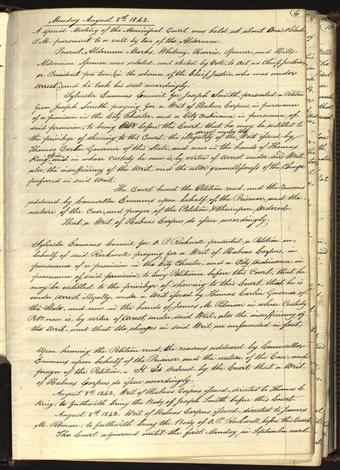 6
Monday August 8th 1842.
A special Meeting of the Municipal Court was held at about One O'clock
P.M. pursuant to a call by two of the Aldermen.
Present, Aldermen Marks, Whitney, Harris, Spencer, and Hills,
Alderman Spencer was selected, and elected by Vote, to act as Chief Justice
or President pro tem, in the absence of the Chief Justice, who was under
arrest; and he took his seat accordingly.
Sylvester Emmons Council for Joseph Smith, presented a Petition
from Joseph Smith praying for a Writ of Habeas Corpus, in pursuance
of a provision in the City Charter, and a City Ordinance in pursuance of
said provision; to bring before this Court, that he may be entitled to
the privilege of shewing to this Court, the illegality of the Writ issued by
Thomas Carlin Governor of this State, and now in the hands of Thomas
King, and in whose custody he now is, by virtue of arrest under said Writ.
also, the insufficiency of the Writ, and the utter groundlessness of the Charge
preferred in said Writ.
The Court heard the Petition read, and the reasons
adduced by Councellor Emmons upon behalf of the Prisoner, and the
nature of the Case, and prayer of the Petition. Whereupon Ordered,
That a Writ of Habeas Corpus do issue accordingly.
Sylvester Emmons Council for O. P. Rockwell presented a Petition on
behalf of said Rockwell praying for a Writ of Habeas Corpus, in
pursuance of a provision in the City Charter, and a City Ordinance in
pursuance of said provision; to bring Petitioner before this Court, that he
may be entitled to the privilege of shewing to this Court, that he is
under arrest illegally, under a Writ issued by Thomas Carlin Governor of
this State, and now in the hands of James M. Pitman in whose Custody
he now is, by virtue of arrest, under said Writ, also the insufficiency of
the Writ, and that the charges in said Writ are unfounded in fact.
Upon hearing the Petition read, the reasons adduced by Councellor
Emmons upon behalf of the Prisoner and the nature of the Case, and
prayer of the Petition. It is Ordered by the Court that a Writ
of Habeas Corpus do issue accordingly.
August 8th 1842. Writ of Habeas Corpus issued, directed to Thomas C.
King, to forthwith bring the Body of Joseph Smith before this Court.
August 8th 1842. Writ of Habeas Corpus issued, directed to James
M. Pitman, to forthwith bring the Body of O. P. Rockwell, before this Court.
The Court adjourned until the first Monday in September next.